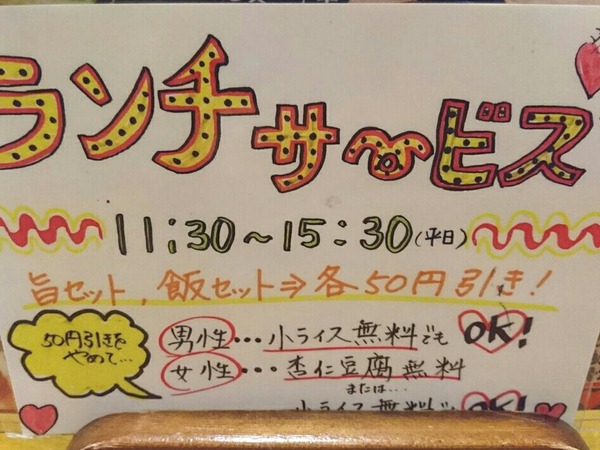 ランチサービス
11:30～15:30(平日)
旨セット,飯セット⇒各50円引き!
50円引きを
やめて...
男性...小ライス無料でもOK!
女性...杏仁豆腐無料
または...
小ライス無料でもOK!